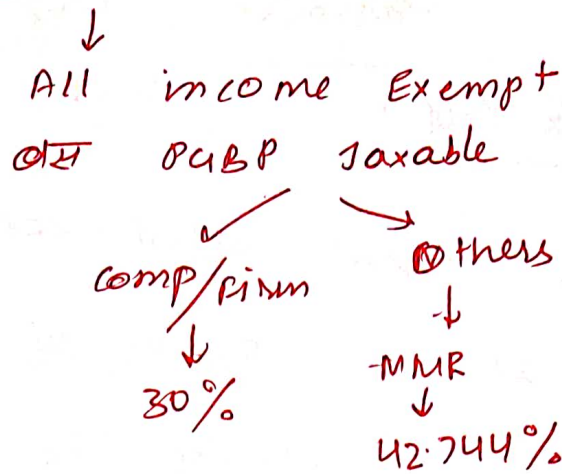 All income Exempt
बस PGBP Taxable
Comp/Firm Others
30% MMR
42.744%